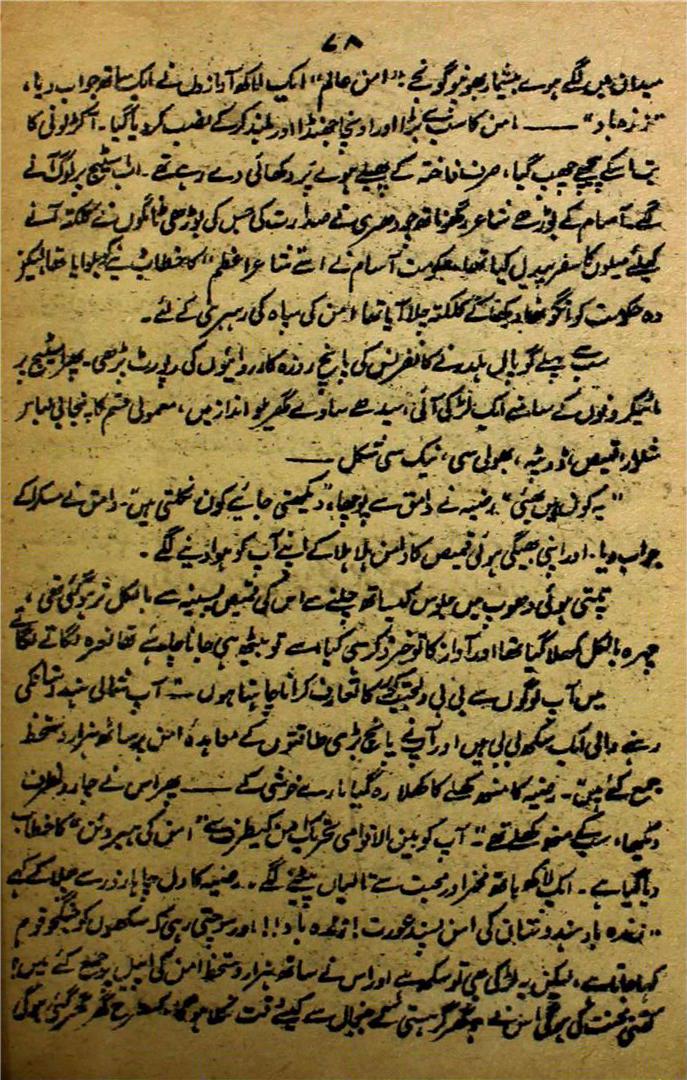 ۷۸
میدان میں لگے ہوے بیشمار بھونپو گونجے :"امن عالم" ایک لاکھ آوازوں نے ایک ساتھ جواب دیا،
"زندہ باد" —— امن کا سب سے بڑا اور اونچا جھنڈا اور بلند کر کے نصب کر دیا گیا۔ اکٹرلونی کا
بت اسکے پیچھے چھپ گیا، صرف فاختہ کے پھیلے ہوئے پر دکھائی دے رہے تھے۔ اب سٹیج پر لوگ آنے
لگے۔ آسام کے بوڑھے شاعر رگھوناتھ چودھری نے صدارت کی جس کی بوڑھی ٹانگوں نے کلکتہ آنے
کیلئے میلوں کا سفر پیدل کیا تھا۔ حکومت آسام نے اسے "شاعر اعظم" کا خطاب دے کر بلوایا تھا لیکن
وہ حکومت کو انگوٹھا دکھا کے کلکتہ چلا آیا تھا امن کی سپاہ کی رہبری کے لئے۔
سب سے پہلے گوپال ہلدر نے کانفرنس کی پانچ روزہ کارروائیوں کی رپورٹ پڑھی۔ پھر اسٹیج پر
مائیکروفون کے سامنے ایک لڑکی آئی، سیدھے سادے گھریلو انداز میں، معمولی قسم کا پنجابی لباس
شلوار، قمیص، ڈوپٹہ، بھولی سی، نیک سی شکل ——
"یہ کون ہیں بھئی" رضیہ نے وامق سے پوچھا، "دیکھتی جائیے کون نکلتی ہیں"۔ وامق نے مسکرا کے
جواب دیا۔ اور اپنی بھیگی ہوئی قمیص کا دامن ہلا ہلا کے اپنے آپ کو ہوا دینے لگے۔
تپتی ہوئی دھوپ میں جلوس کیساتھ چلنے سے اس کی قمیص پسینہ سے بالکل تر ہو گئی تھی،
چہرہ بالکل کمھلا گیا تھا اور آواز کا تو خیر ذکر ہی کیا اسے تو بیٹھ ہی جانا چاہئے تھا نعرہ لگاتے لگاتے
میں آپ لوگوں سے بی بی دلجیت کور کا تعارف کرانا چاہتا ہوں – آپ شمالی ہندوستان کی
رہنے والی ایک سکھ بی بی ہیں اور آپ نے پانچ بڑی طاقتوں کے معاہدۂ امن پر ساٹھ ہزار دستخط
جمع کئے ہیں"۔ رضیہ کا منہ کھلے کا کھلا رہ گیا مارے خوشی کے —— پھر اس نے چاروں طرف
دیکھا، سب کے منھ کھلے تھے "آپ کو بین الاقوامی تحریک امن کیطرف سے "امن کی ہیروئن" کا خطاب
دیا گیا ہے۔ ایک لاکھ ہاتھ فخر اور محبت سے تالیاں پیٹنے لگے۔ رضیہ کا دل چاہا زور سے چلا کے کہے
"زندہ باد ہندوستان کی امن پسند عورت! زندہ باد!! اور سوچتی رہی کہ سکھوں کو جنگجو قوم
کہا جاتا ہے، لیکن یہ لڑکی بھی تو سکھ ہے اور اس نے ساٹھ ہزار دستخط امن کی اپیل پر جمع کئے ہیں!
کتنی محنت کی ہوگی اس نے گھر گرہستی کے جنجال سے کیسے وقت نکالا ہوگا، کسطرح گھر گھر گئی ہوگی